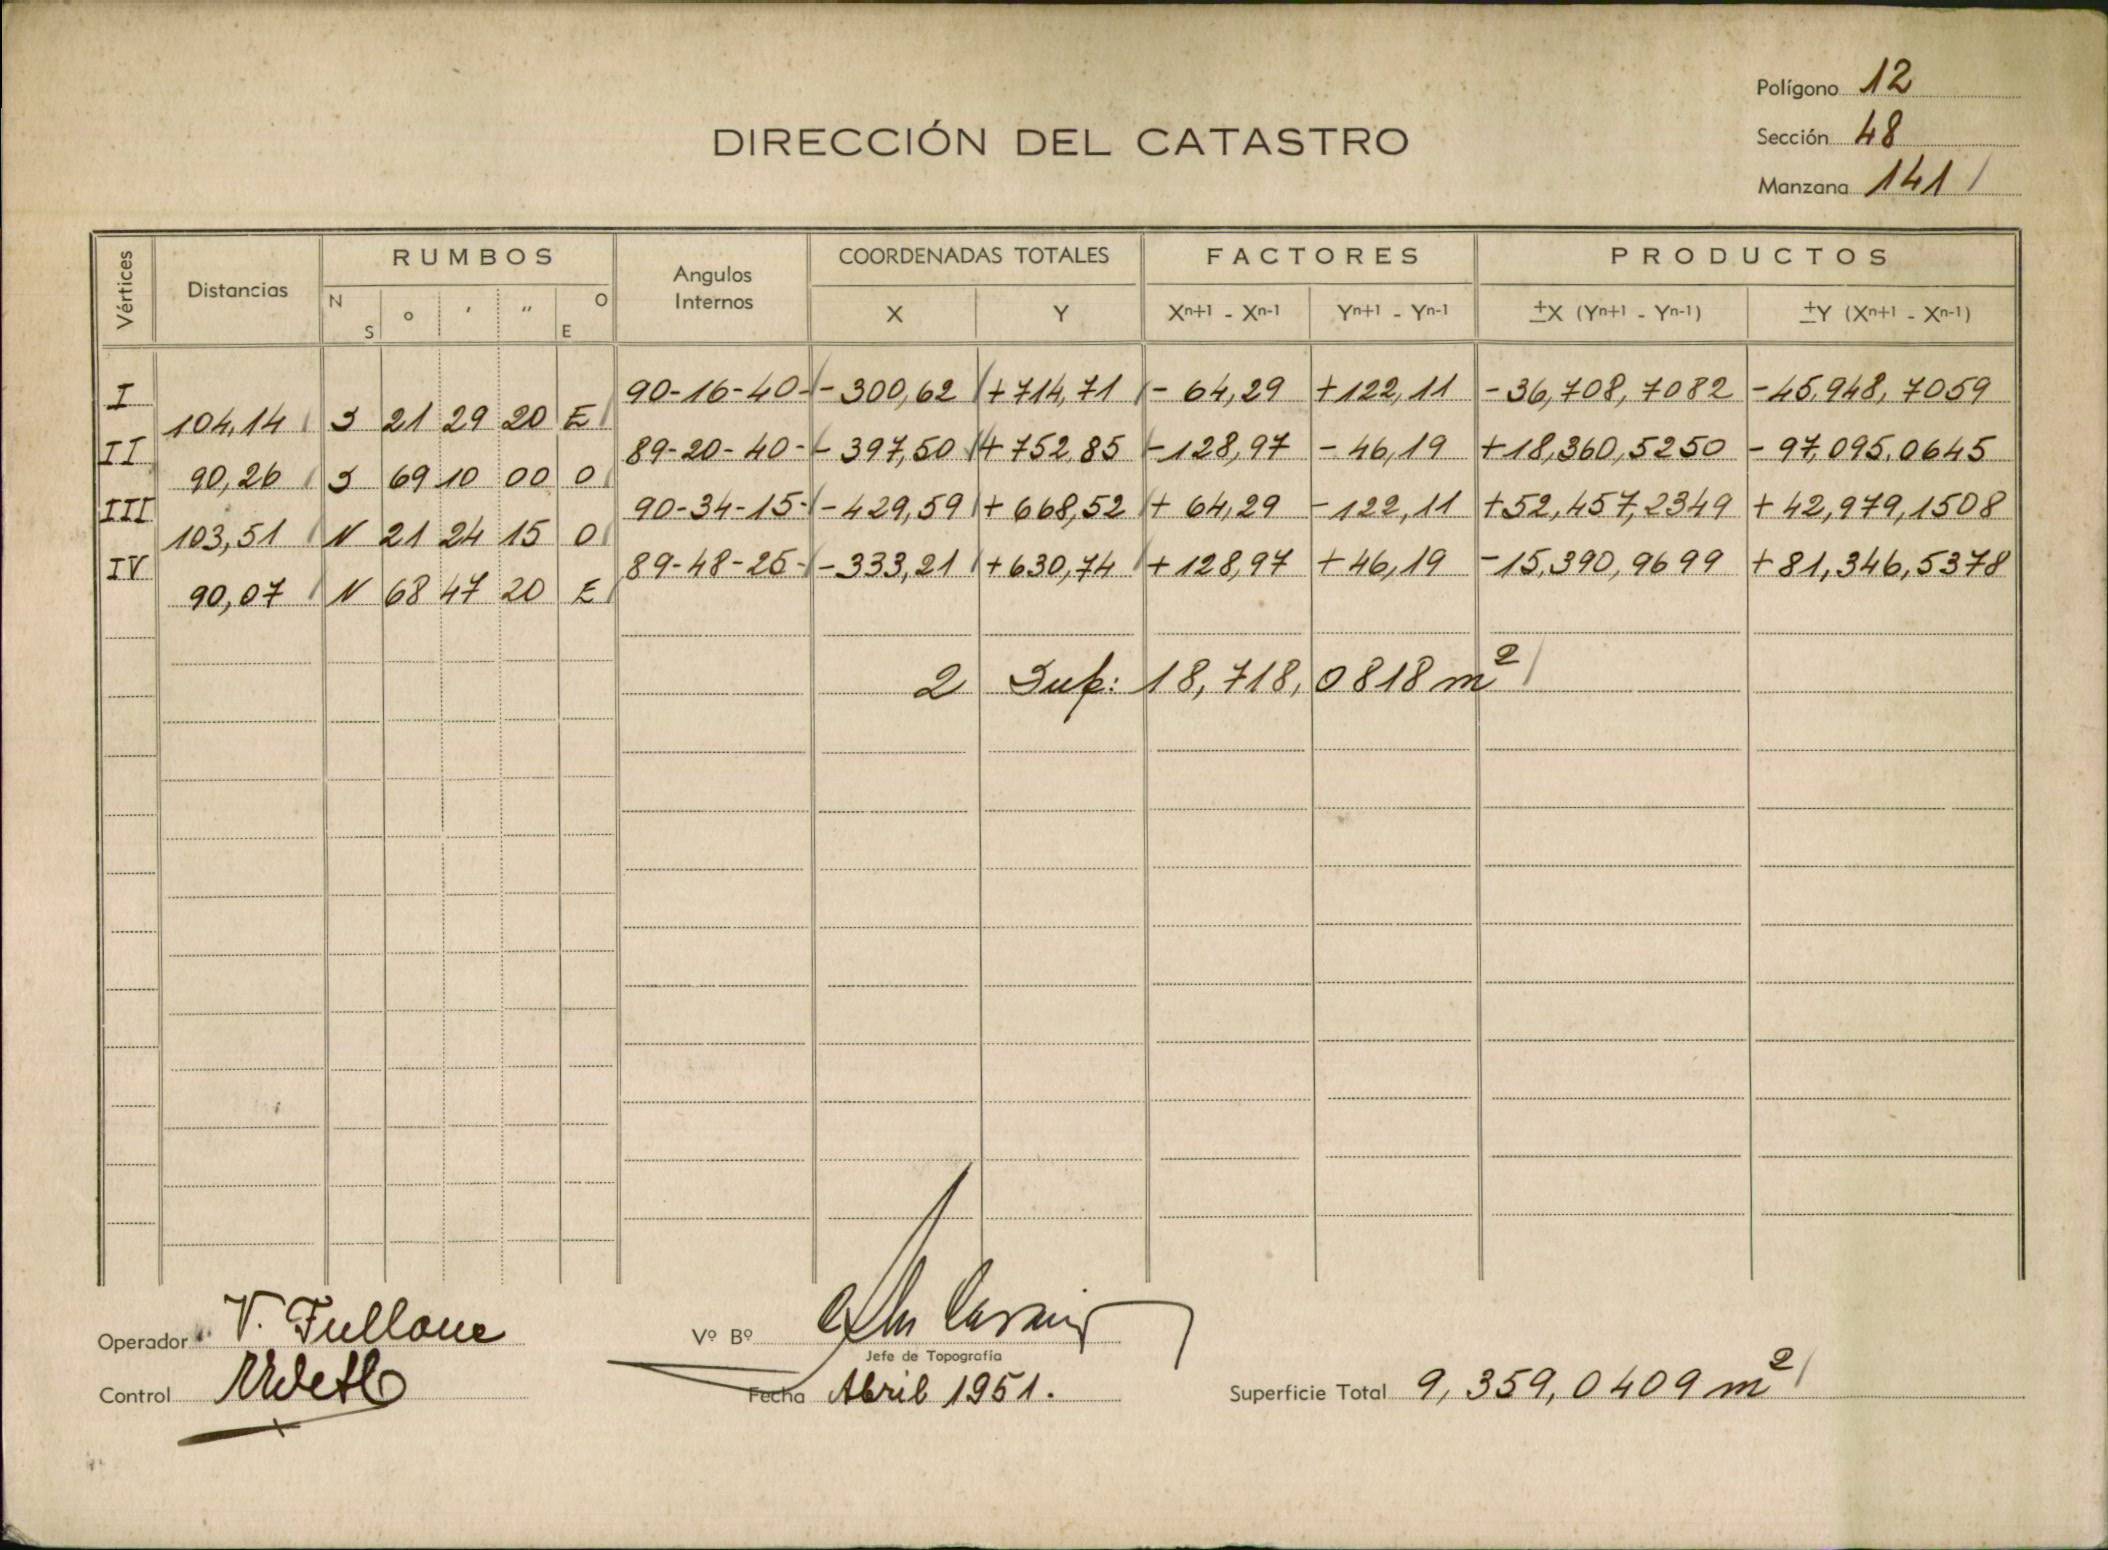 Polígono 12
DIRECCIÓN DEL CATASTRO
Sección 48
Manzana 141
Vértices Distancias RUMBOS Angulos Internos COORDENADAS TOTALES FACTORES PRODUCTOS
N S o ' " O E X Y Xn+1 - Xn-1 Yn+1 - Yn-1 ±X (Yn+1 - Yn-1) ±Y (Xn+1 - Xn-1)
I 90-16-40- -300,62 +714,71 - 64,29 +122,11 -36,708,7082 -45,948,7059
104,14 S 21 29 20 E
II 89-20-40- - 397,50 + 752,85 -128,97 - 46,19 +18,360,5250 - 97,095,0645
90,26 S 69 10 00 O
III 90-34-15- -429,59 + 668,52 + 64,29 -122,11 +52,457,2349 + 42,979,1508
103,51 N 21 24 15 O
IV 89-48-25- -333,21 +630,74 +128,97 +46,19 -15,390,9699 +81,346,5378
90,07 N 68 47 20 E
2 Sup: 18,718,0818 m²
Operador V. Fullone
Vº Bº
Jefe de Topografía
Control
Fecha Abril 1951.
Superficie Total 9,359,0409 m²